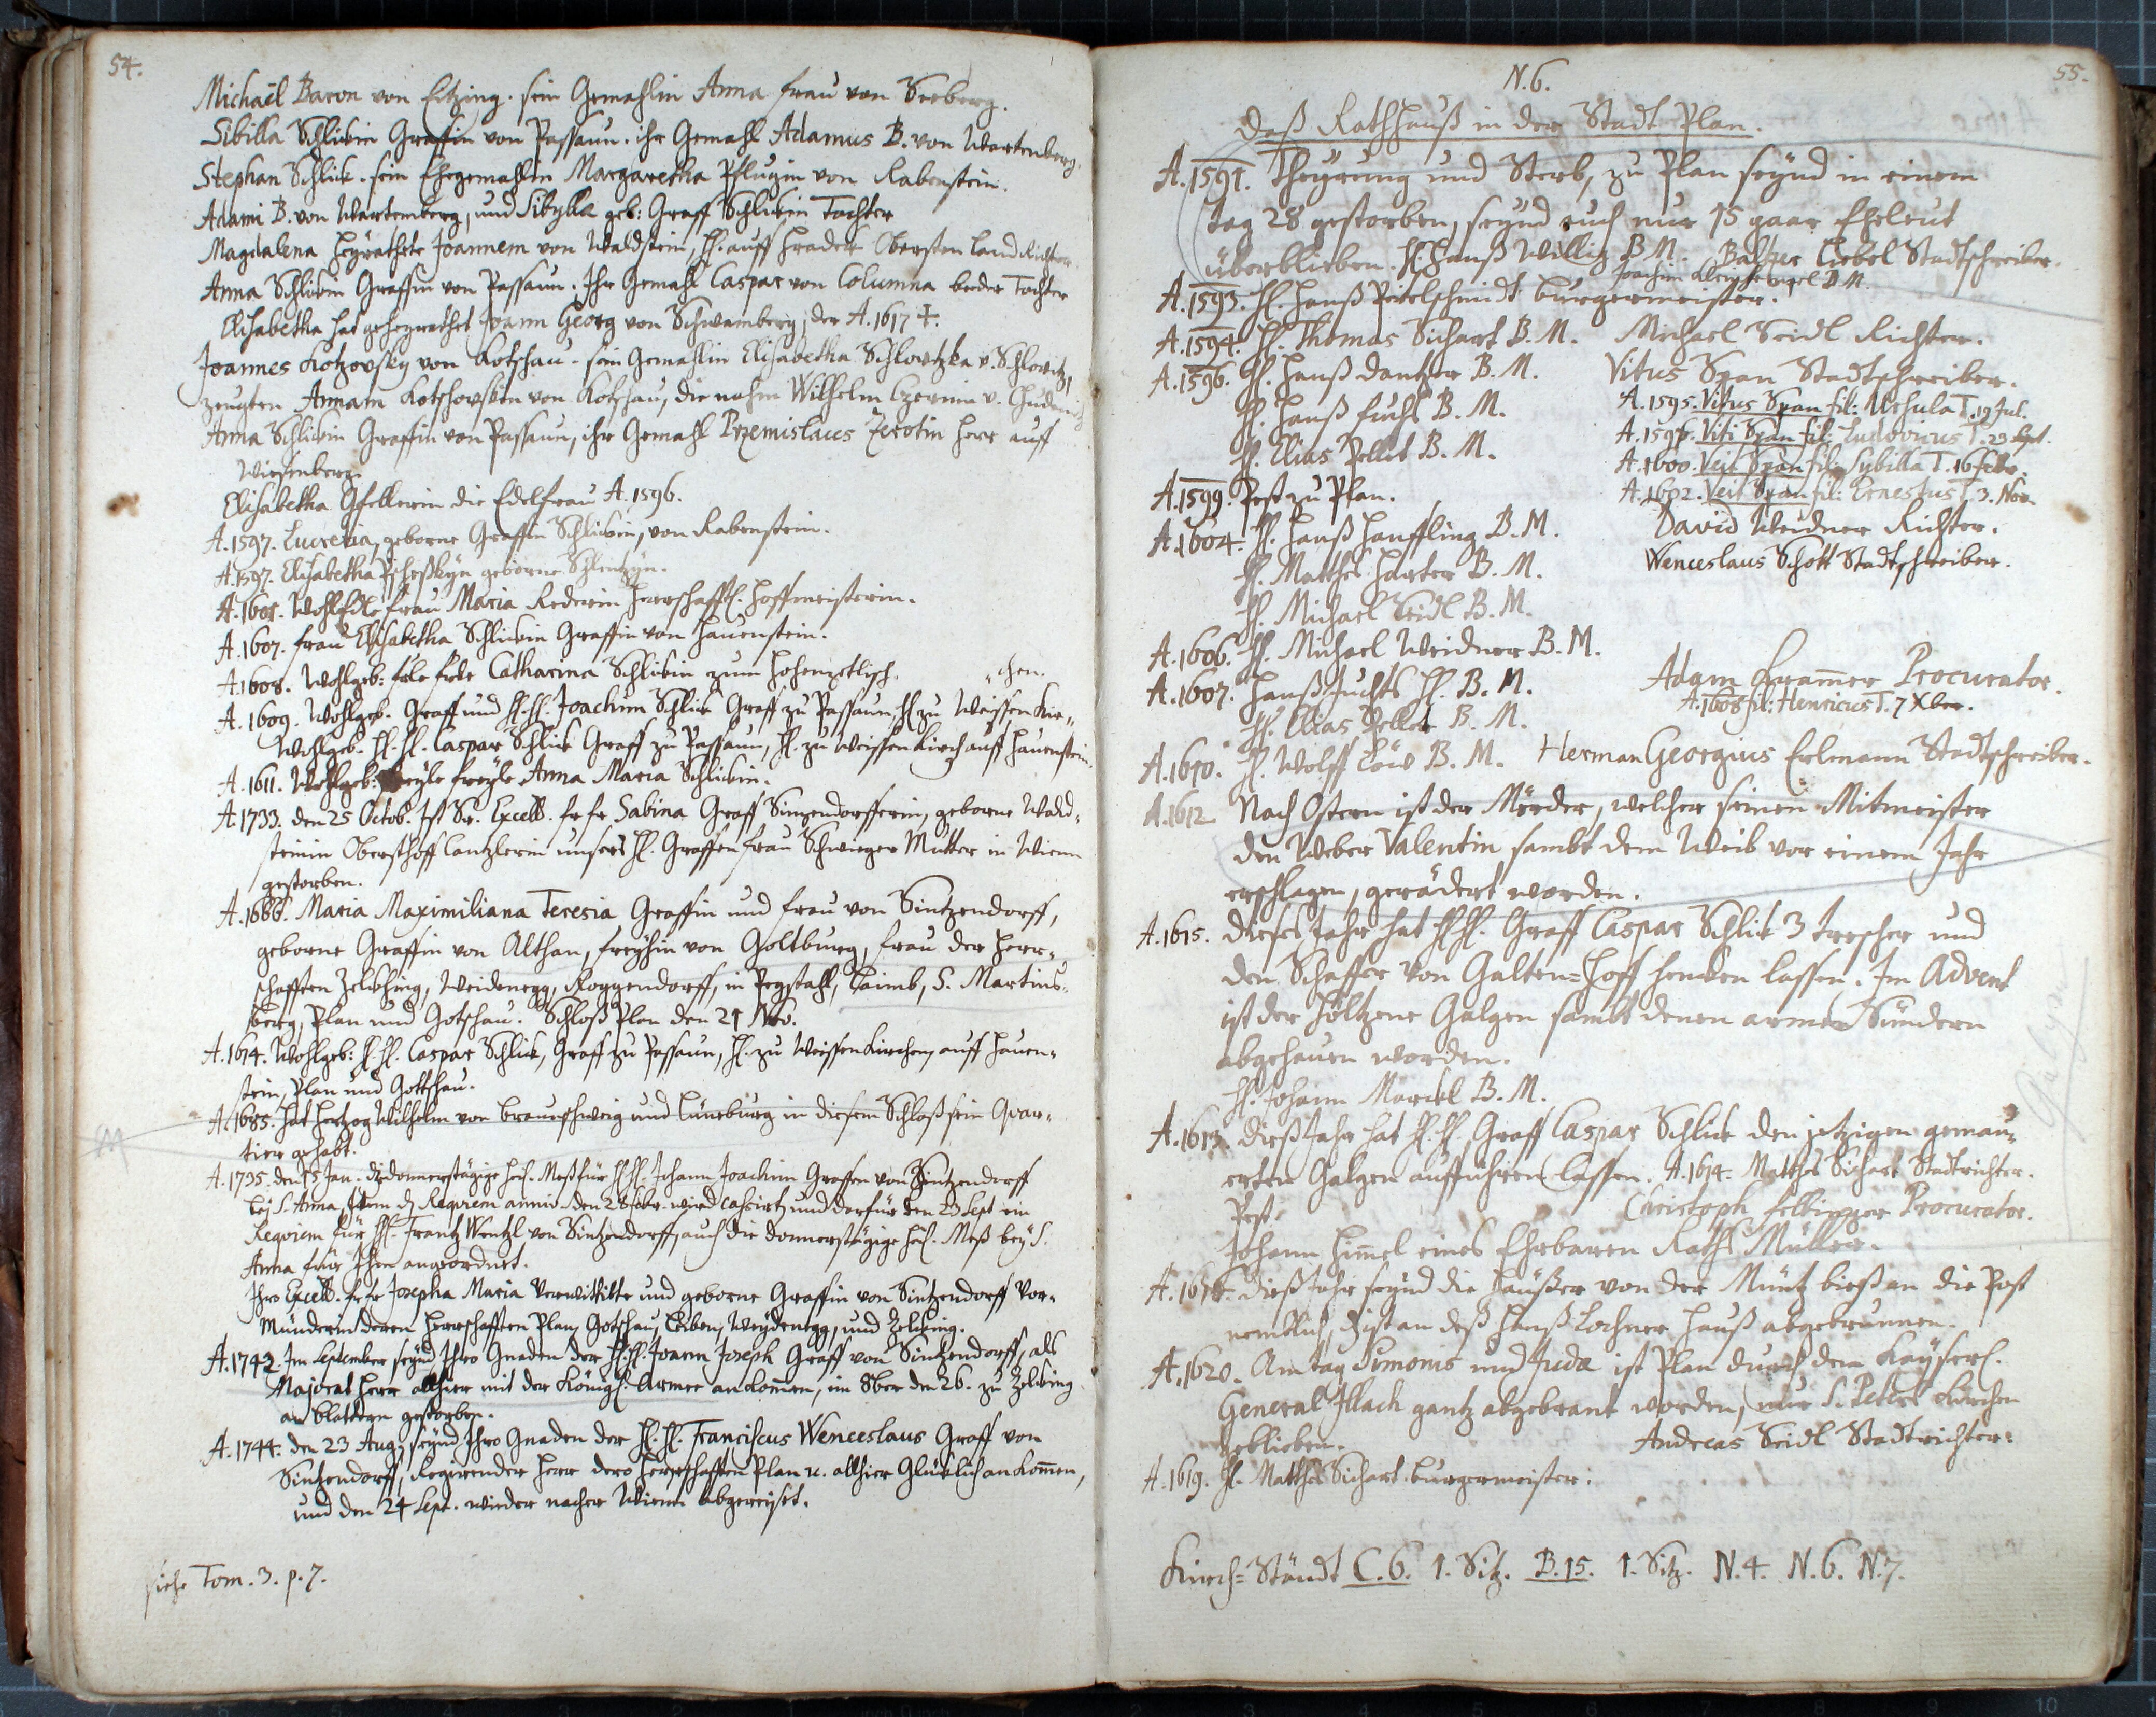 54.
Michaël Baron von Eitzing. sein Gemahlin Anna frau von Seeberg.
Sibilla Schlickin Graffin von Passaun. ihr Gemahl Adamus B. von Wartenberg.
Stephan Schlick. sein Ehegemahlin Margaretha Pflugin von Rabenstein.
Adami B. von Wartemberg, und Sibylla geb: Graff Schlickin Tochter
Magdalena heyrathete Joannem von Waldstein, H. auff Hradek Obersten Land Richter.
Anna Schlickin Graffin von Passaun. Ihr Gemahl Caspar von Columna beder Tochter
Elisabetha hat geheyrathet Joann Georg von Schwamberg, der A. 1617 †.
Joannes Kotzovsky von Kotschau. sein Gemahlin Elisabetha Schlowitzka v. Schlowitz,
zeugten Annam Kotschovskin von Kotschau, die nahm Wilhelm Czernin v. Chudenitz
Anna Schlickin Graffin von Passaun, ihr Gemahl Przemislaus Zerotin Herr auff
Wiesenberg.
Elisabetha Gfellerin die Edelfrau A. 1596.
A. 1597. Lucretia, geborne Graffin Schlickin, von Rabenstein.
A. 1597. Elisabetha geborne
A. 1601. WohlEdle frau Maria Rederin Herrschafftl. Hoffmeisterin.
A. 1607. frau Elisabetha Schlickin Graffin von Hauenstein.
A. 1608. Wohlgeb: Catharina Schlickin zum
A. 1609. Wohlgeb. Graff und H.H. Joachim Schlick Graff zu Passaun, H. zu Weissen Kir„ „chen.
Wohlgeb. H.H. Caspar Schlick Graff zu Passaun, H. zu Weissenkirch auff Hauenstein.
A. 1611. Wohlgeb: freyle Anna Maria Schlickin.
A. 1733. den 25 Octob. Ist Sr. Excell. fr fr Sabina Graff Sinzendorfferin, geborne Wald„
steinin Obersthoff Canzlerin unsers H. Graffen frau Schwieger Mutter in Wienn
gestorben.
A. 1666. Maria Maximiliana Teresia Graffin und frau von Sintzendorff,
geborne Graffin von Althan, freyhin von Goltburg, frau der Herr„
schafften Zelking, Weidenegg, Roggendorff, in Pegstahl, Laimb, S. Martins„
berg, Plan und Gotschau. Schloß Plan den 21 Nov.
A. 1614. Wohlgeb: H.H. Caspar Schlick, Graff zu Passaun, H. zu Weissenkirchen, auff Hauen„
stein, Plan und Gottschau.
A. 1685. hat Hertzog Wilhelm von Braunschweig und Lüneburg in diesem Schloß sein Qvar„
tier gehabt.
A. 1735. den 15 Jan. die donnerstägige heil. Meß für H.H. Johann Joachim Graffen von Sintzendorff
bej S. Anna, Item Requiem anniv. den 28 febr. wird cassirt, und darfür den 23 Sept ein
Requiem für H. Frantz Wentzl von Sintzendorff, auch die donnerstägige heil. Meß bey S.
Anna für Ihm angeordnet.
Ihro Excell. fr fr Josepha Maria verwittibte und geborne Graffin von Sintzendorff Vor„
münderin deren Herrschafften Plan, Gotschau, Leiben, Weydenegg, und Zelking.
A. 1742. Im September seynd Ihro Gnaden der H.H. Joann Joseph Graff von Sintzendorff, als
Majorat Herr allhier mit der Königl. Armee ankomen, im 8ber den 26. zu Zelking
an blattern gestorben.
A. 1744. den 23 Aug. seynd Ihro Gnaden der H.H. Franciscus Wenceslaus Graff von
Sintzendorff, Regirender Herr dero Herrschafften Plan u. allhier Glücklich ankomen,
und den 24 Sept. wieder nacher Wienn abgereyset.
siehe Tom. 3. p. 7.
55.
N. 6.
Daß Rathhauß in der Stadt Plan.
A. 1591. Theyrung und Sterb, zu Plan seynd in einem
tag 28 gestorben, seynd auch nur 15 paar Eheleut
überblieben. H. Hanß Willig B.M. Baltzer Liebel Stadtschreiber.
A. 1593. H. Hanß Peitelschmidt burgermeister. Joachim B.M.
A. 1594. H. Thomas Sichart B.M. Michael Seidl Richter.
A. 1596. H. Hanß Dantzer B.M. Vitus Span Stadtschreiber.
H. Hanß fuchs B.M. A. 1595. Vitus Span fil: Ursula T. 19 Jul.
H. Elias Peller B.M. A. 1597. Viti Span fil: Ludovicus T. 23 Sept.
A. 1600. Veit Span fil: Sybilla T. 16 febr.
A. 1599. Pest zu Plan. A. 1602. Veit Span fil: Ernestus T. 3. Nov.
A. 1604. H. Hanß Hanffling B.M. David Weidner Richter.
H. Matthes Harter B.M. Wenceslaus Schott Stadtschreiber.
H. Michael Seidl B.M.
A. 1606. H. Michael Weidner B.M.
A. 1607. Hanß fuchs H. B.M. Adam Kramer Procurator.
H. Elias Peller B.M. A. 1608 fil: Henricus T. 7 Xber.
A. 1610. H. Wolff Löw B.M. Herman Georgius Erlmann Stadtschreiber.
A. 1612 Nach Ostern ist der Mörder, welcher seinen Mitmeister
den Weber Valentin sambt dem Weib vor einem Jahr
erschlagen, gerädert worden.
A. 1615. dieses Jahr hat H.H. Graff Caspar Schlick 3 trescher und
den Schaffer von Galten=Hoff hencken lassen. Im Advent
ist der höltzene Galgen sambt denen armen Sündern
abgehauen worden.
H. Johann Marckl B.M.
Galgen
A. 1613. dieß Jahr hat H.H. Graff Caspar Schlick den jetzigen gemau„
erten Galgen aufführen lassen. A. 1614. Matthes Sichart Stadtrichter.
Pest. Christoph felbinger Procurator.
Johann Himel eines Ehrbaren Raths Müller.
dieß Jahr seynd die Häußer von der Müntz bieß an die Post
nemblich, biß an deß Hanß Lochner Hauß abgebrunnen.
A. 1620. Am tag Simonis und Juda ist Plan durch dem Kayserl.
General Illach gantz abgebrant worden, nur S. Peters Kirchen
geblieben. Andreas Seidl Stadtrichter.
A. 1619. H. Matthes Sichart burgermeister.
Kirch=Ständt C. 6. 1. Sitz. B. 15. 1. Sitz. N. 4. N. 6. N. 7.